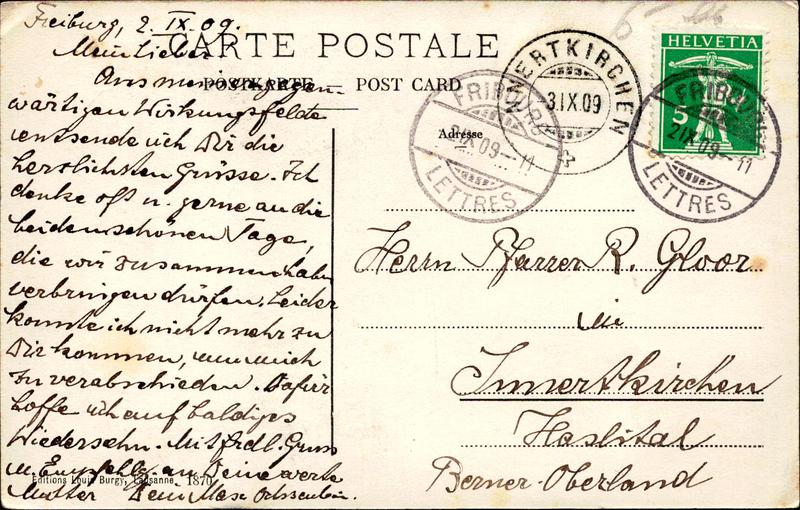 Freiburg, 2. IX. 09.
Mein Lieber
CARTE POSTALE
POSTKARTE POST CARD
Aus meinem gegen-
wärtigen Wirkungsfelde
entsende ich Dir die
herzlichsten Grüsse. Ich
denke oft u. gerne an die
beiden schönen Tage,
die wir zusammen haben
verbringen dürfen. Leider
konnte ich nicht mehr zu
Dir kommen, um mich
zu verabschieden. Dafür
hoffe ich auf baldiges
Wiedersehn. Mit frdl. Gruss
u. Empfehlg. an Deine werte
Mutter Dein Max
Editions Louis Burgy, Lausanne. 1870
HELVETIA
5
INNERTKIRCHEN
3.IX.09
FRIBOURG
2.IX.09–11
LETTRES
FRIBOURG
2.IX.09–11
LETTRES
Adresse
Herrn Pfarrer R. Gloor
in
Innertkirchen
Haslital
Berner-Oberland